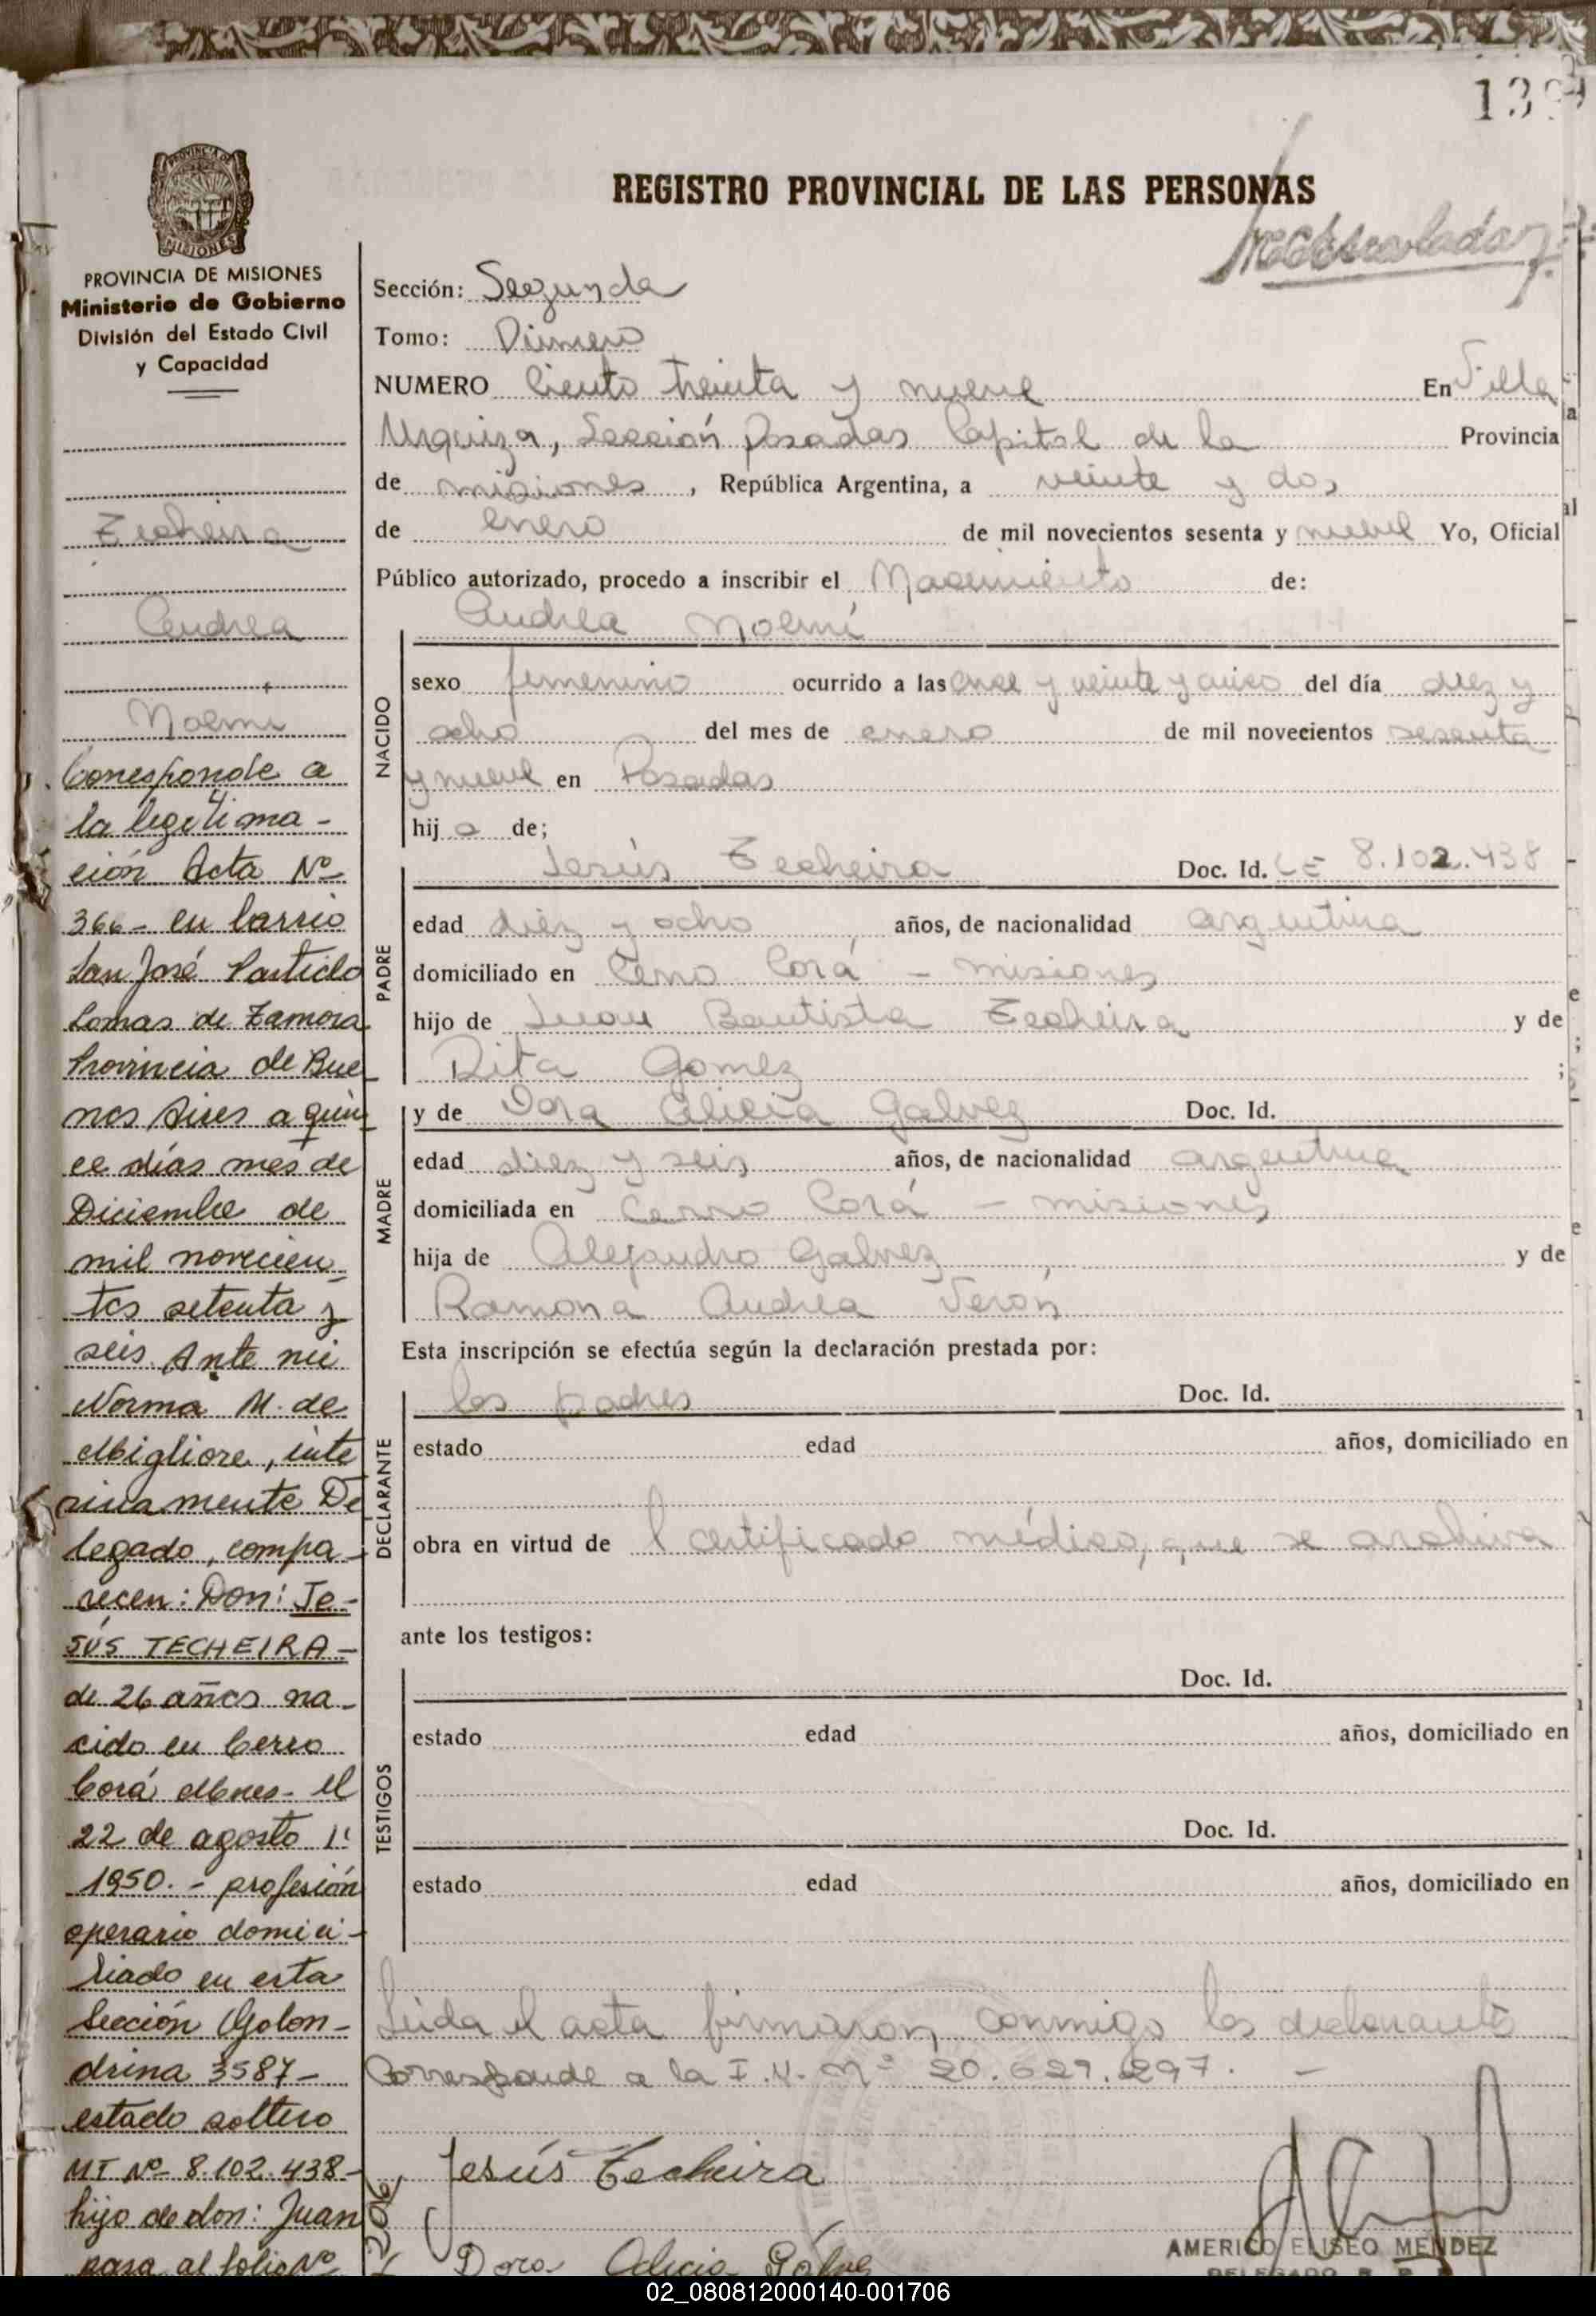 139
PROVINCIA DE
MISIONES
REGISTRO PROVINCIAL DE LAS PERSONAS
PROVINCIA DE MISIONES
Ministerio de Gobierno
División del Estado Civil
y Capacidad
Techeira
Andrea
Noemi
Corresponde a
la legitima-
ción Acta Nº
366- en barrio
San José Partido
Lomas de Zamora
Provincia de Bue
nos Aires a quin
ce días mes de
Diciembre de
mil novecien_
tos setenta y
seis. Ante mi
Norma M. de
Migliore, inte
rinamente De
legado, compa-
recen: Don: Je-
SÚS TECHEIRA-
de 26 años na-
cido en Cerro
Corá Mnes- el
22 de agosto
1950.- profesión
operario domici-
liado en esta
Sección Golon-
drina 3587-
estado soltero
MI Nº 8.102.438-
hijo de don: Juan
pasa al folio Nº 206
Sección: Segunda
Tomo: Primero
NUMERO Ciento treinta y nueve En Villa
Urquiza, Sección Posadas Capital de la Provincia
de misiones, República Argentina, a veinte y dos
de enero de mil novecientos sesenta y nueve Yo, Oficial
Público autorizado, procedo a inscribir el Nacimiento de:
Andrea Noemí
NACIDO
sexo femenino ocurrido a las once y veinte y cinco del día diez y
ocho del mes de enero de mil novecientos sesenta
y nueve en Posadas
hija de;
PADRE
Jesús Techeira Doc. Id. LE 8.102.438
edad diez y ocho años, de nacionalidad argentina
domiciliado en Cerro Corá - misiones
hijo de Juan Bautista Techeira y de
Rita Gomez ;
MADRE
y de Dora Alicia Galvez Doc. Id.
edad diez y seis años, de nacionalidad argentina
domiciliada en Cerro Corá - misiones
hija de Alejandro Galvez y de
Ramona Andrea Verón
Esta inscripción se efectúa según la declaración prestada por:
DECLARANTE
los padres Doc. Id.
estado edad años, domiciliado en
obra en virtud de l certificado médico, que se archiva
ante los testigos:
TESTIGOS
Doc. Id.
estado edad años, domiciliado en
Doc. Id.
estado edad años, domiciliado en
Leida el acta firmaron conmigo los declarantes
Corresponde a la I.N. Nº 20.627.297. -
Jesús Techeira
Dora Alicia Gálvez
AMERICO ELISEO MENDEZ
DELEGADO R. P. P.
02_080812000140-001706